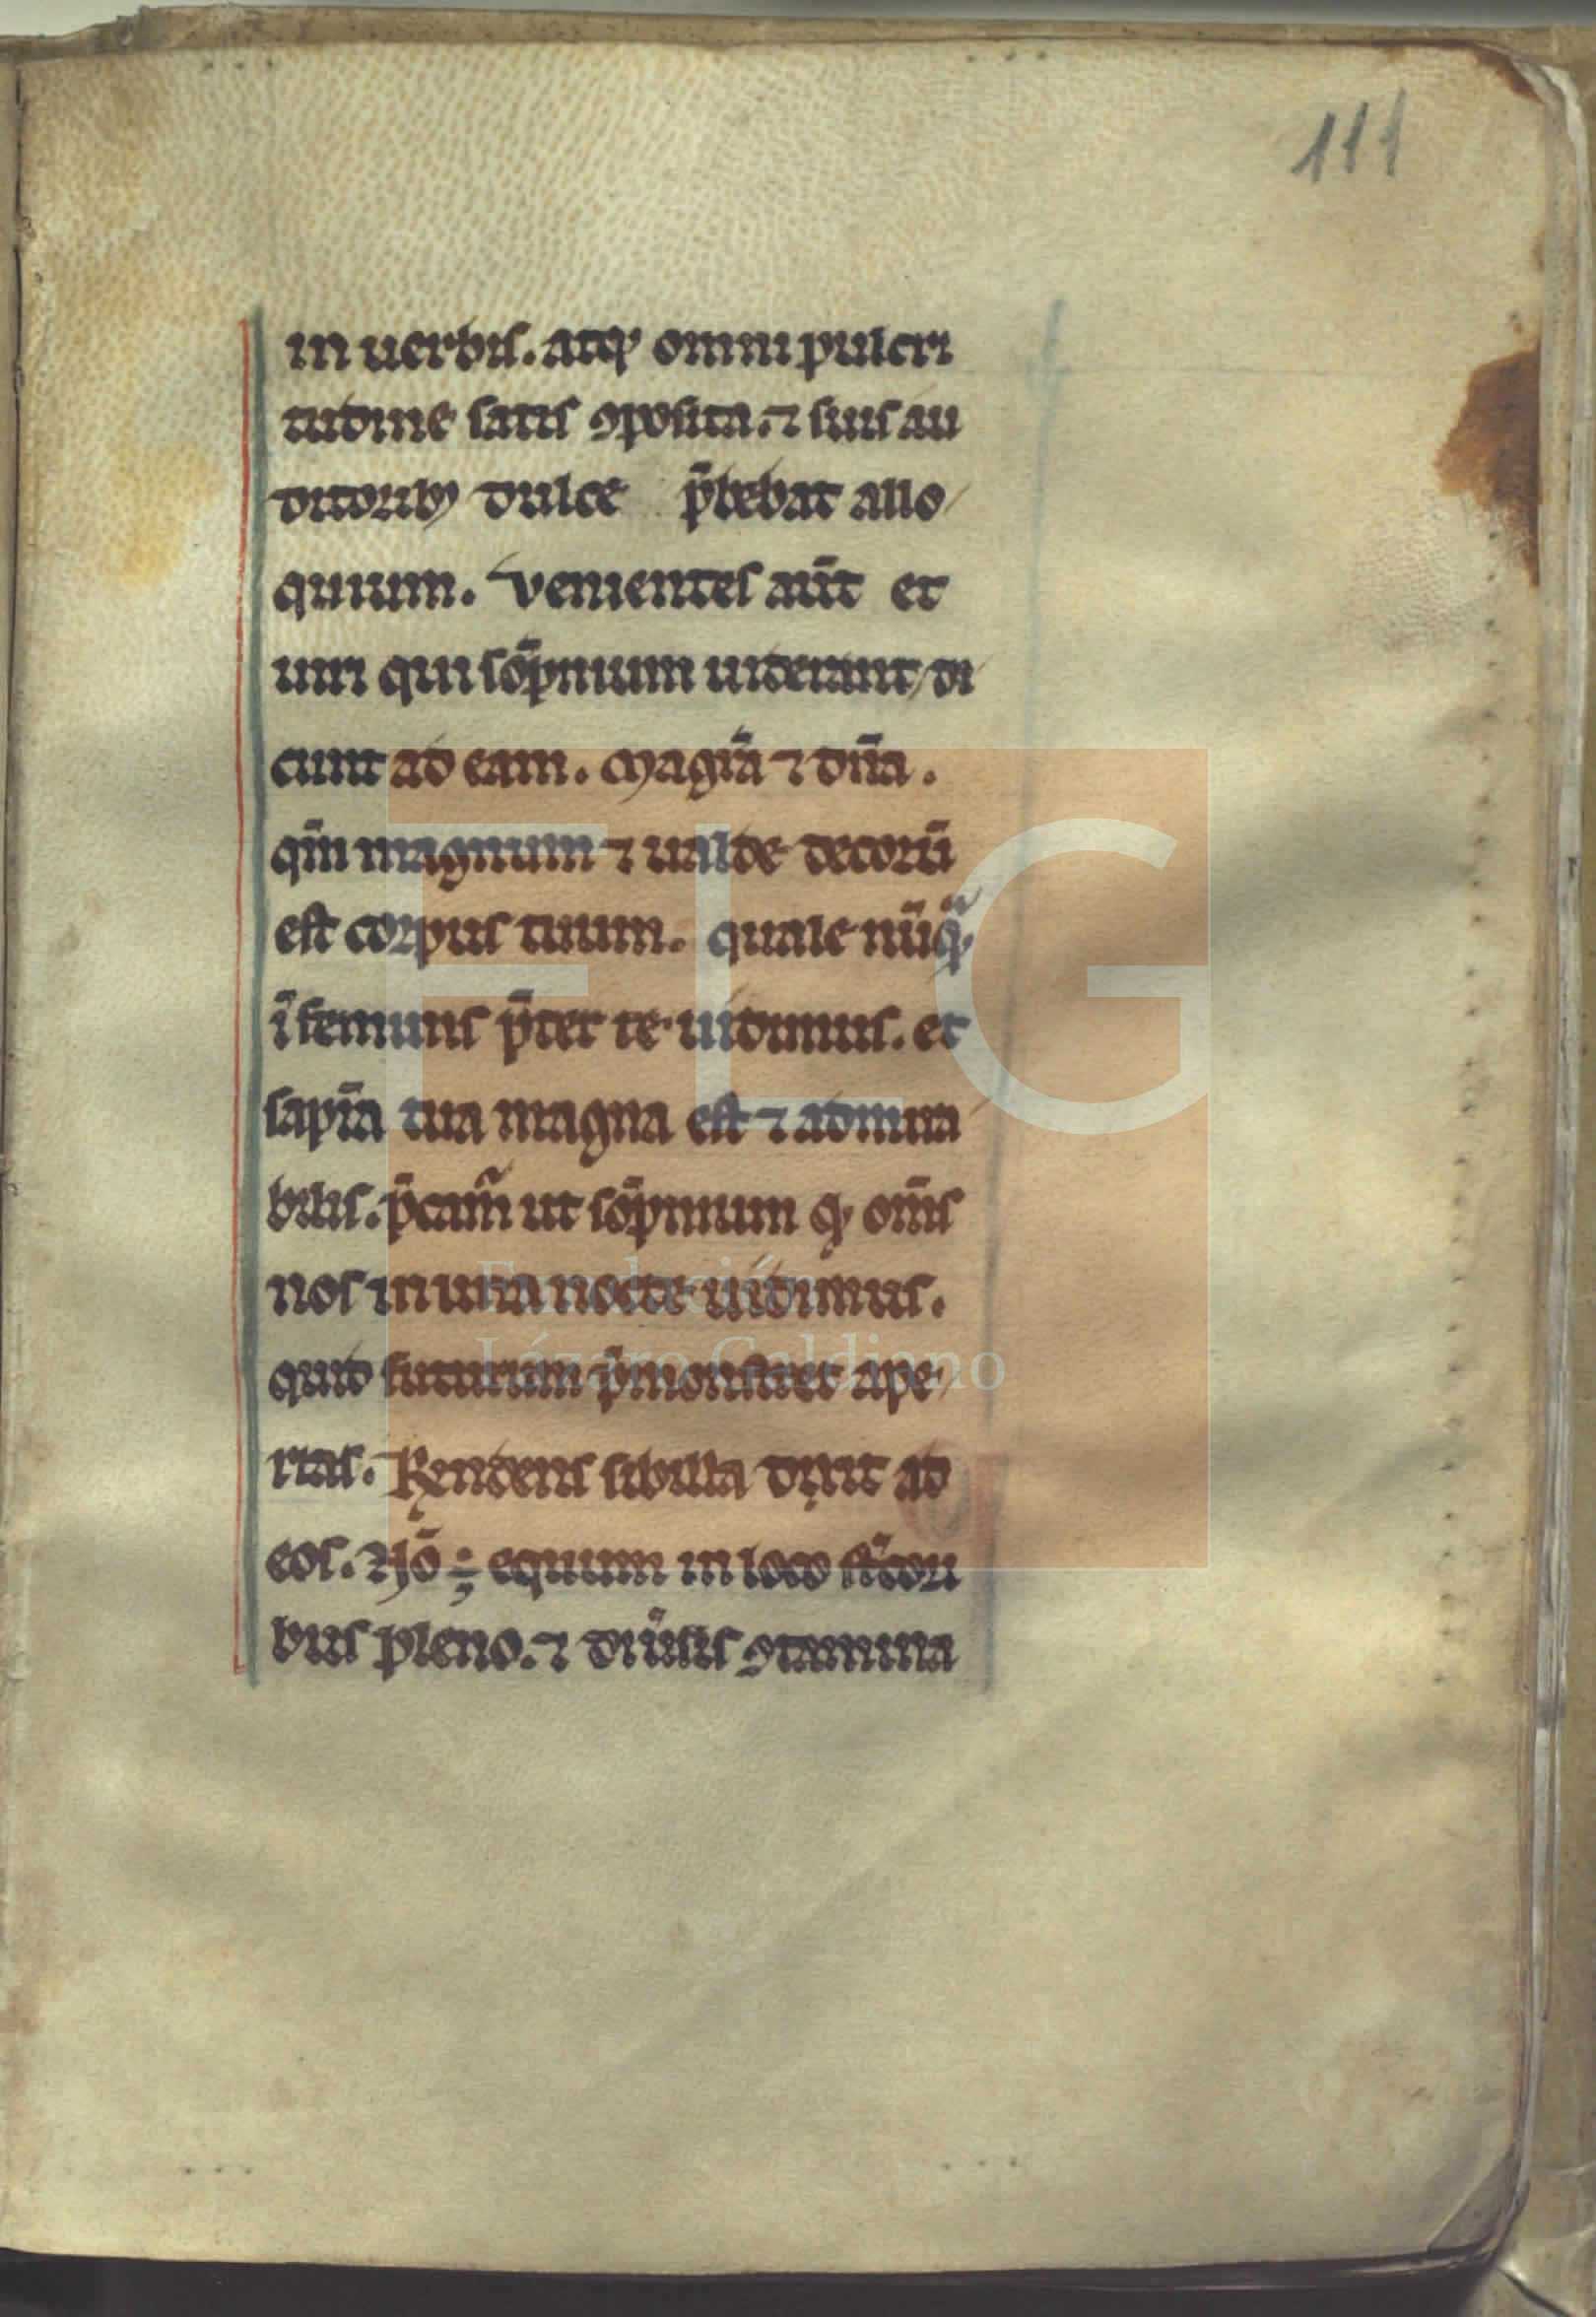 111
in uerbis. atqꝫ omni pulcri
tudine satis ꝯposita. ⁊ suis au
ditoribꝫ dulce p̄bebat allo
quium. Venientes aūt et
uiri qui sōpnium uiderant di
cunt ad eam. Magr̄a ⁊ dn̄a.
qm̄ magnum ⁊ ualde decorū
est corpus tuum. quale nūqͣ
ī feminis p̄ter te uidimus. et
sapīa tua magna est ⁊ admira
bilis. p̄cam̄ ut sōpnium qꝫ om̄s
nos in una nocte uidimus.
quid futurum p̄monstret ape
rias. Rn̄dens sibilla dixit ad
eos. Nō ÷ equum in loco st̄cori
bus pleno. ⁊ diūsis ꝯtamina
FLG
Fundación
Lázaro Galdiano